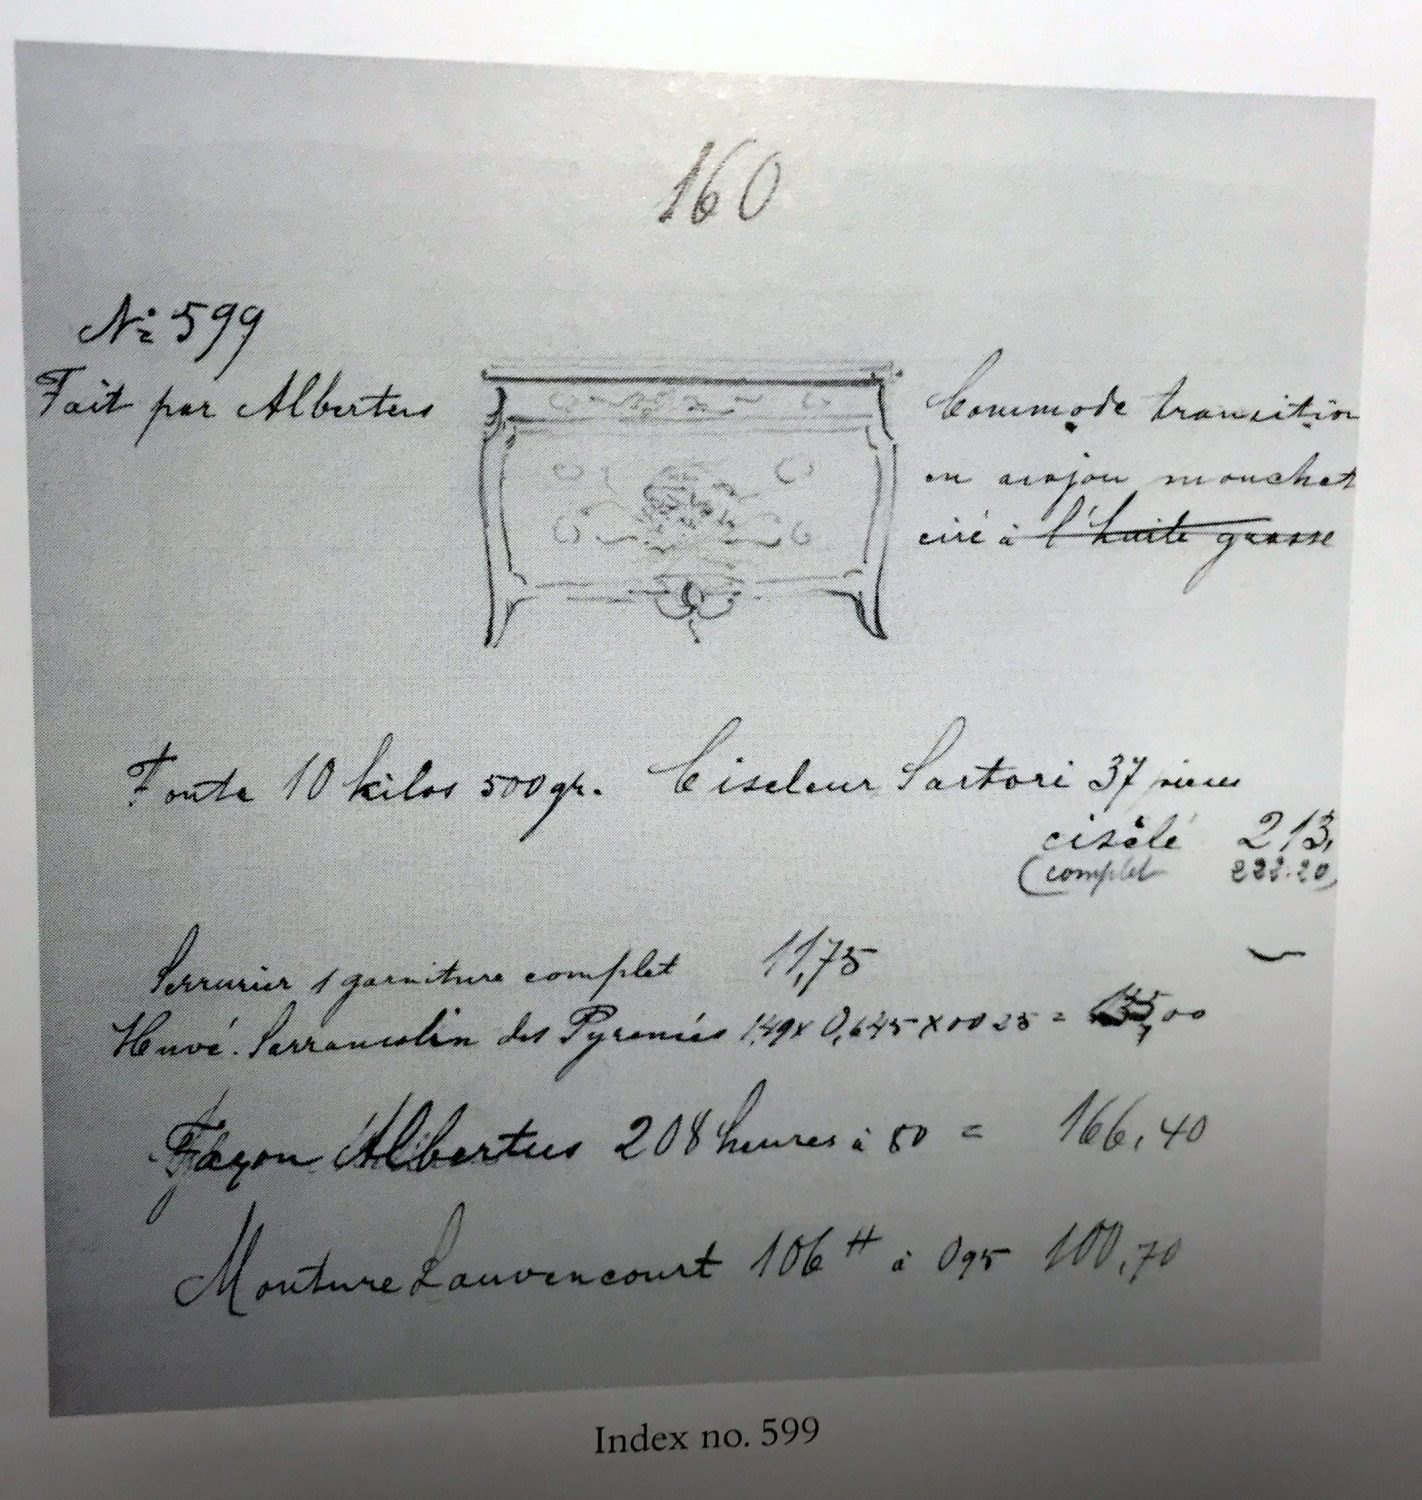 160
No 599
Fait par Albertus
Commode transition
en acajou mouchet
ciré à l'huile grasse
Fonte 10 kilos 500 gr. Ciseleur Sartori 37 pieces
ciselé 213,
(complet 222.20)
Serrurier 1 garniture complet 11,75
Huvé. Sarrancolin des Pyrenées 1,49 x 0,645 x 0025 = ,00
Façon Albertus 208 heures à 80 = 166,40
Monture Lauvencourt 106 H à 095 100,70
Index no. 599